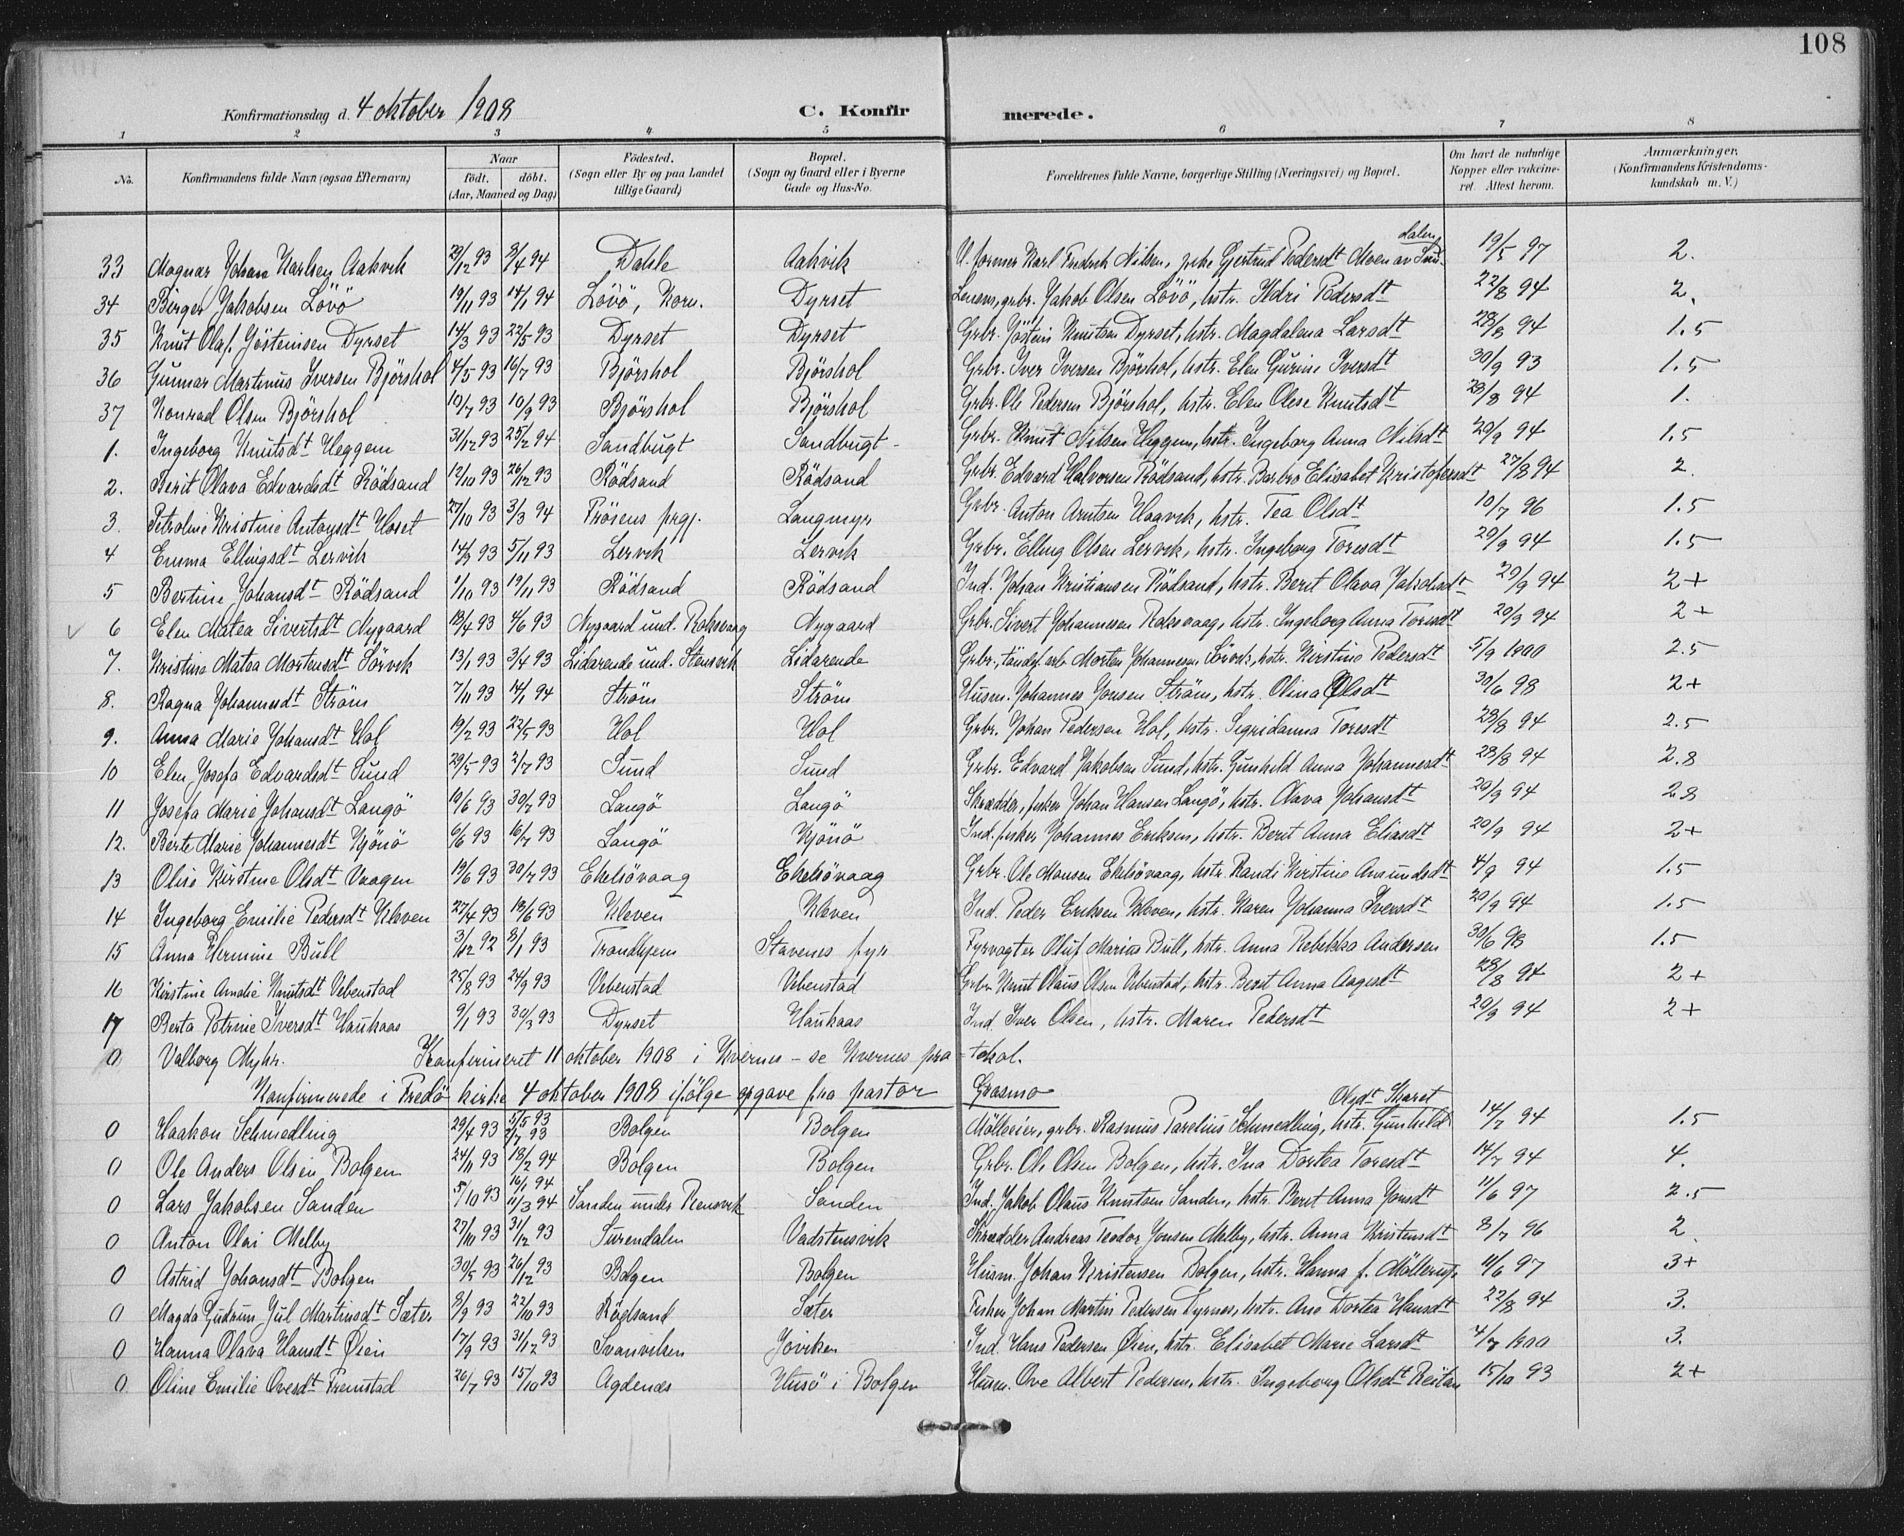 108
Konfirmationsdag d. 4 oktober 1908 C. Konfirmerede.
1 2 3 4 5 6 7 8
No. Konfirmandens fulde Navn (ogsaa Efternavn) Naar født. døbt. (Aar, Maaned og Dag) Fødested. (Sogn eller By og paa Landet tillige Gaard) Bopæl. (Sogn og Gaard eller i Byerne Gade og Hus-No. Forældrenes fulde Navne, borgerlige Stilling (Næringsvei) og Bopæl. Om havt de naturlige Kopper eller vaccineret. Attest herom. Anmærkninger. (Konfirmandens Kristendomskundskab m. V.)
33 Magnar Johan Karlsen Aakvik 29/12 93 8/4 94 Dahle Aakvik Karl Fredrik Nilsen, Gjertrud Pedersdt Moen av Sundalen 19/5 97 2.
34 Birger Jakobsen Lövö 19/11 93 14/1 94 Lövö, Korn. Dyrset grbr. Jakob Olsen Lövö, hstr. Ildri Pedersdt 22/8 94 2.
35 Knut Olaf Jösteinsen Dyrset 14/3 93 22/5 93 Dyrset Dyrset Grbr. Jöstein Knutsen Dyrset, hstr. Magdalena Larsdt 28/8 94 1.5
36 Gunnar Martinus Iversen Bjørshol 4/5 93 16/7 93 Bjørshol Bjørshol Grbr. Iver Iversen Bjørshol, hstr. Elen Gurine Iversdt 30/9 93 1.5
37 Konrad Olsen Bjørshol 10/7 93 10/9 93 Bjørshol Bjørshol Grbr. Ole Pedersen Bjørshol, hstr. Elen Olese Knutsdt 28/8 94 1.
1. Ingeborg Knutsdt Heggem 31/12 93 25/2 94 Sandbugt Sandbugt Grbr. Knut Nilsen Heggem, hstr. Ingeborg Anna Nilsdt 20/9 94 1.5
2. Berit Olava Edvardsdt Rödsand 12/10 93 26/12 93 Rödsand Rödsand Grbr. Edvard Halvorsen Rödsand, hstr. Barbro Elisabet Kristofersdt 27/8 94 2.
3. Petroline Kristine Antonsdt Hoset 27/10 93 3/3 94 Frösens prgj. Langmyr Grbr. Anton Arntsen Haavik, hstr. Tea Olsdt 10/7 96 1.5
4 Emma Ellingsdt Lervik 14/9 93 5/11 93 Lervik Lervik Grbr. Elling Olsen Lervik, hstr. Ingeborg Toresdt 20/9 94 1.5
5 Bertine Johansdt Rödsand 1/10 93 19/11 93 Rödsand Rödsand Ind. Johan Kristiansen Rödsand, hstr. Berit Olava Jakobsdt 20/9 94 2+
6 Elen Matea Sivertsdt Nygaard 18/4 93 4/6 93 Nygaard und. Roksvaag Nygaard Grbr. Sivert Johannesen Roksvaag, hstr. Ingeborg Anna Toresdt 20/9 94 2+
7. Kristine Matea Mortensdt Sörvik 13/1 93 3/4 93 Lidarende und. Stensvik Lidarende Grbr. Morten Johannesen Sörvik, hstr. Kirstine Pedersdt 5/9 1900 2.5
8. Ragna Johannesdt Ström 7/11 93 14/1 94 Ström Ström Husm. Johannes Jonsen Ström, hstr. Olina Olsdt 30/6 98 2+
9. Anna Marie Johansdt Hol 19/2 93 22/5 93 Hol Hol Grbr. Johan Pedersen Hol, hstr. Sigridanna Toresdt 28/8 94 2.5
10 Elen Josefa Edvardsdt Sund 29/5 93 2/7 93 Sund Sund Grbr. Edvard Jakobsen Sund, hstr. Gunhild Anna Johannesdt 28/8 94 2.8
11 Josefa Marie Johansdt Langö 10/6 93 30/7 93 Langö Langö Skrædder, fisker Johan Hansen Langö, hstr. Olava Johansdt 20/9 94 2.8
12. Berte Marie Johannesdt Kjönö 6/6 93 16/7 93 Langö Kjönö Ind. fisker Johannes Eriksen, hstr. Berit Anna Eliasdt 20/9 94 2+
13 Olise Kirstine Olsdt Vaagen 19/6 93 30/7 93 Ekelsövaag Ekelsövaag Grbr. Ole Monsen Ekelsövaag, hstr. Randi Kirstine Amundsdt 4/9 94 1.5
14 Ingeborg Emilie Pedersdt Kleven 27/4 93 18/6 93 Kleven Kleven Ind. Peder Eriksen Kleven, hstr. Karen Johanna Iversdt 20/9 94 1.5
15 Anna Hermine Bull 3/12 92 8/1 93 Trondhjem Stavenes fyr Fyrvagter Oluf Marius Bull, hstr. Anna Rebekka Andersen 30/6 98 1.5
16 Kirstine Amalie Knutsdt Vebenstad 25/8 93 24/9 93 Vebenstad Vebenstad Grbr Knut Olaus Olsen Vebenstad, hstr. Berit Anna Aagesdt 28/8 94 2+
17 Berta Petrine Iversdt Haukaas 9/1 93 30/3 93 Dyrset Haukaas Ind. Iver Olsen, hstr. Maren Pedersdt 20/9 94 2+
0 Valborg Myhr. Konfirmeret 11 oktober 1908 i Kvernes – se Kvernes protokol.
Konfirmerede i Fredö kirke 4 oktober 1908 ifölge opgave fra pastor Grasmo
0 Haakon Schmedling 29/4 93 5/5 93 2/7 93 Bolgen Bolgen Mölleeier, grbr. Rasmus Parelius Schmedling, hstr. Gunhild Olsdt Skaret 14/7 94 1.5
0 Ole Anders Olsen Bolgen 24/11 93 18/2 94 Bolgen Bolgen Grbr. Ole Olsen Bolgen, hstr. Ina Dortea Toresdt 14/7 94 4.
0 Lars Jakobsen Sanden 5/10 93 16/1 94 11/3 94 Sanden under Rensvik Sanden Ind. Jakob Olaus Knutsen Sanden, hstr. Beret Anna Jonsdt 11/6 97 2.5
0 Anton Olai Melby 27/10 93 31/12 93 Surendalen Vadstensvik Skrædder Andreas Teodor Jonsen Melby, hstr. Anna Kristensdt 8/7 96 2
0 Astrid Johansdt Bolgen 30/5 93 26/12 93 Bolgen Bolgen Husm. Johan Kristensen Bolgen, hstr. Hanna f. 11/6 97 3+
0 Magda Gudrun Jul Martinsdt Sæter 8/9 93 22/10 93 Rödsand Sæter Fisker Johan Martin Pedersen Tyrnes, hstr. Ane Dortea Hansdt 22/8 94 3.
0 Hanna Olava Hansdt Öien 17/9 93 31/12 93 Svanviken Jöviken Ind. Hans Pedersen Öien, hstr. Elisabet Marie Larsdt 4/7 1900 3.
0 Oline Emilie Ovesdt Fremstad 26/7 93 15/10 93 Agdenes Husö i Bolgen Husm. Ove Albert Pedersen, hstr. Ingeborg Olsdt Reitan 15/10 93 2+